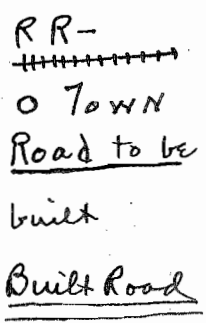 R R-
O TOWN
Road to be
built
Built Road